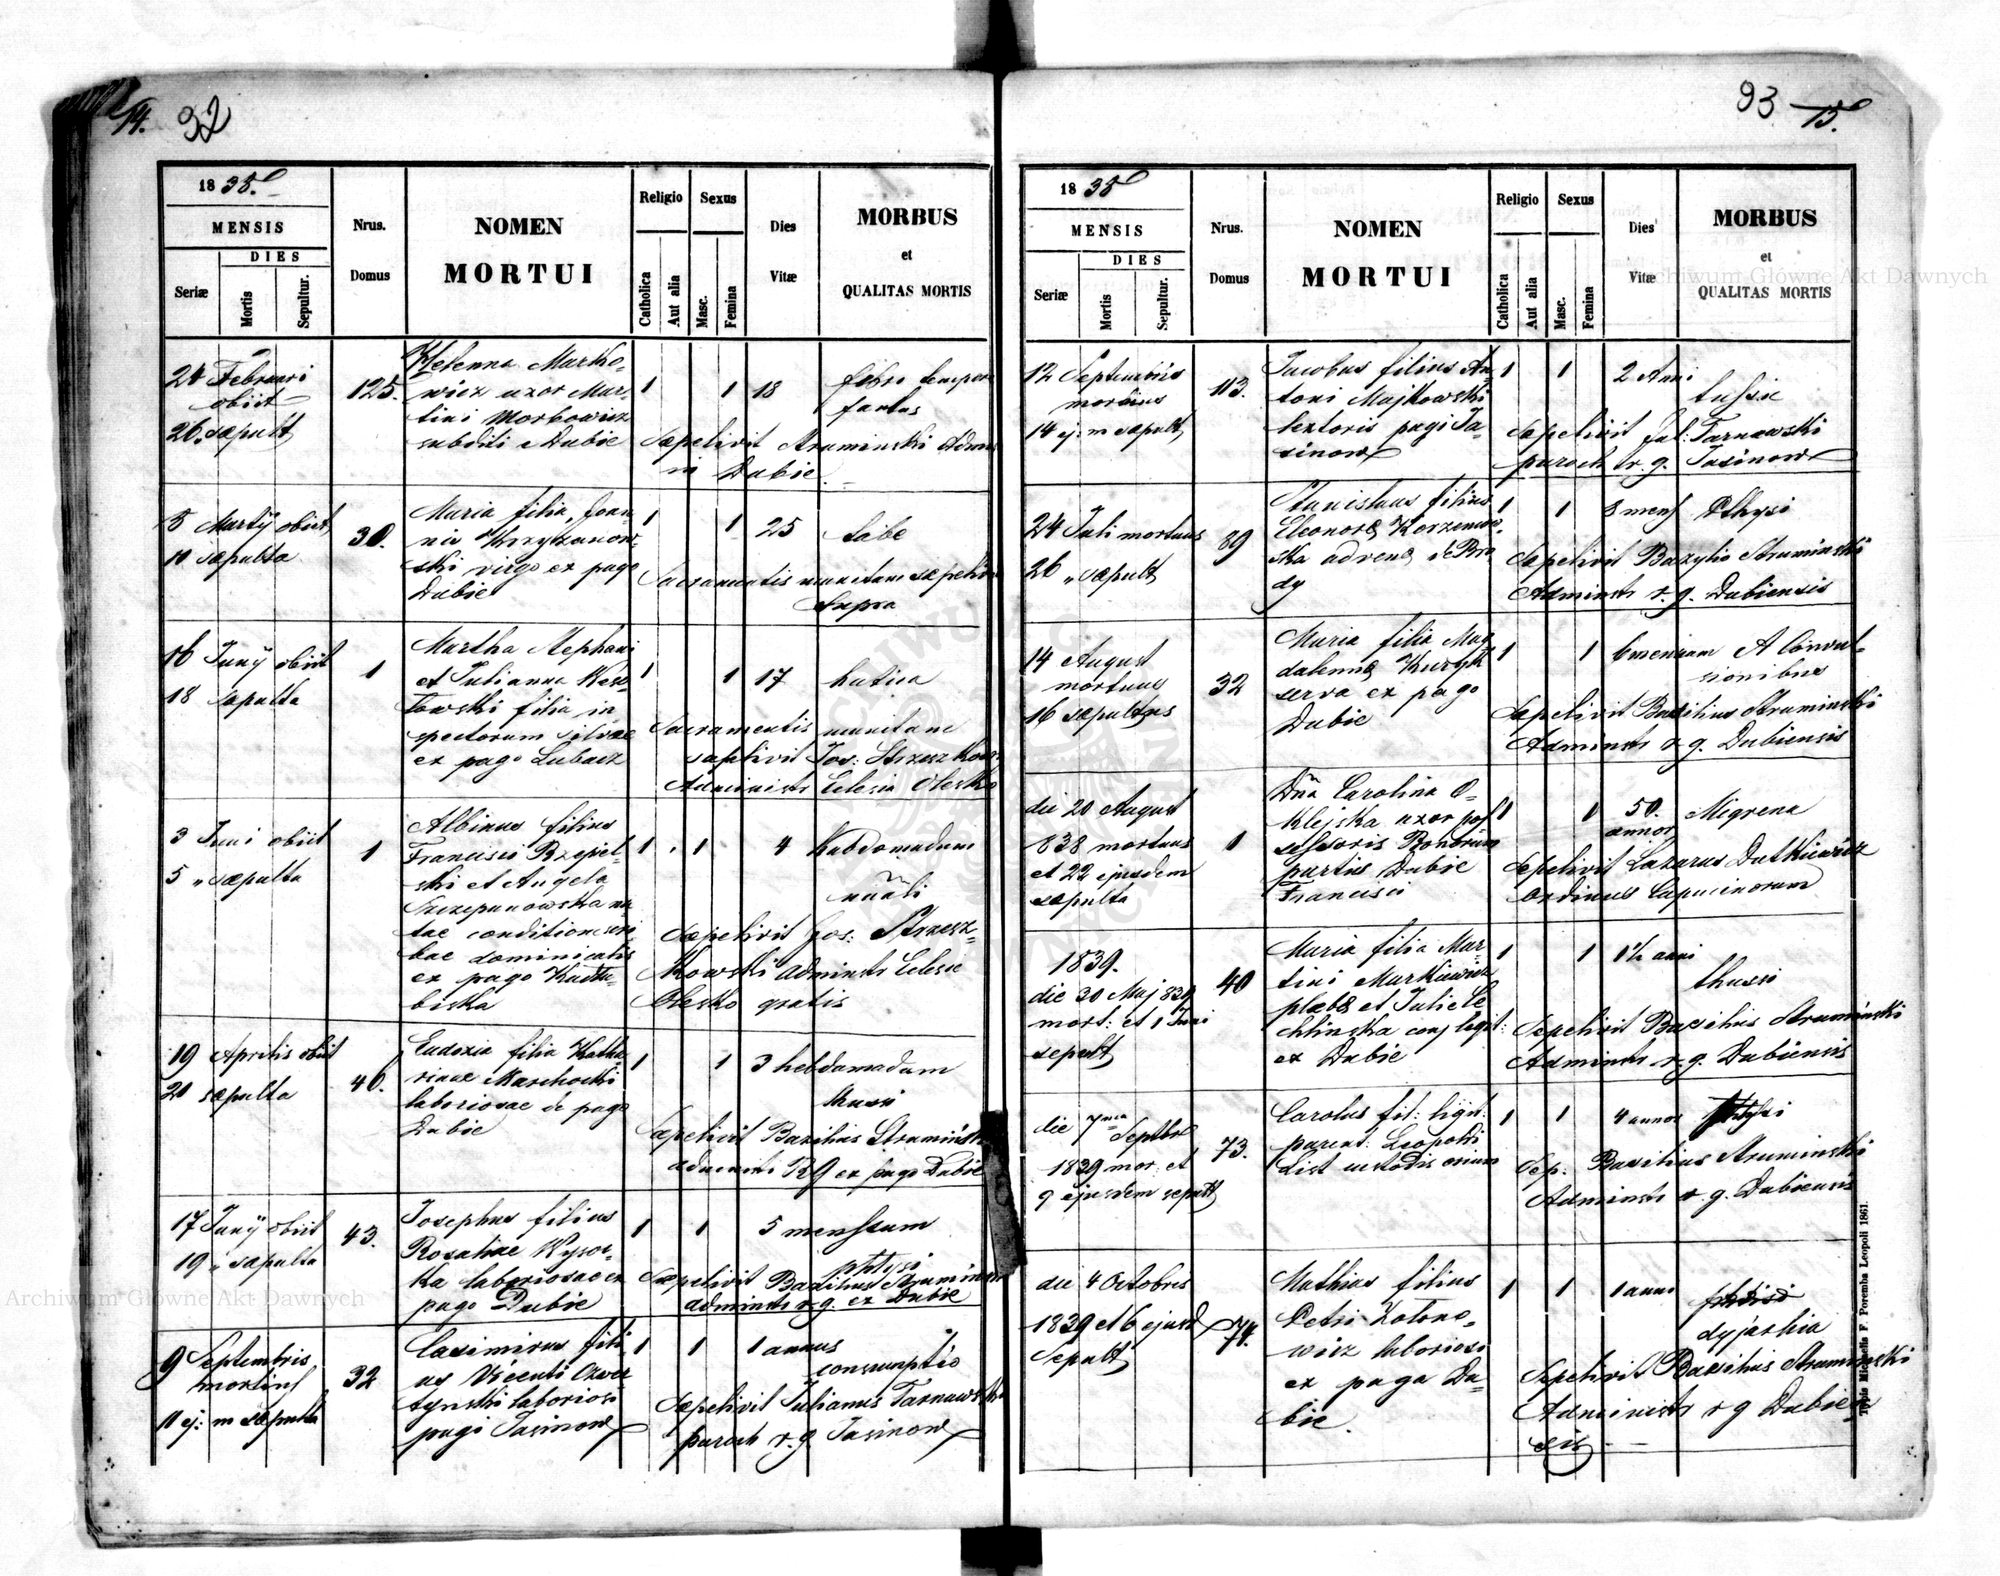 14. 92
1838.
MENSIS
DIES
Seriæ
Mortis
Sepultur.
Nrus.
Domus
NOMEN
MORTUI
Religio
Catholica
Aut alia
Sexus
Masc.
Femina
Dies
Vitæ
MORBUS
et
QUALITAS MORTIS
24 Februari
obiit
26. sepult
125.
Helenna Marko-
wicz uxor Mar-
tini Morkowicz
subditi e Dubie
1 1 18
febre
Sepelivit Struminski Adm
in Dubie.
8 Martij obiit
10 sepulta
30.
Maria filia Joan-
nis Krzyzanow-
ski virgo ex pago
Dubie
1 1 25
tabe
Sacramentis munitam sepelivit
supra
16 Junij obiit
18 sepulta
1
Martha Stephani
et Julianna
filia in
spectorum silvae
ex pago Lubacz
1 1 17
hectica
Sacramentis munitam
sepelivit Jos: Strzeszkow
Administr Eclesia Olesko
3 Juni obiit
5 " sepulta
1
Albinus filius
Francisci Rzepel-
ski et Angela
Szczepanowska na
tae conditione scri
bae dominicalis
ex pago
biska
1 1 4 Habdomadum
Sepelivit Jos: Strzesz-
kowski Administr Eclesie
Olesko gratis
19 Aprilis obiit
21 sepulta
46.
Eudoxia filia Katha
rinae Marchocki
laboriosae de pago
Dubie
1 1 3 hebdomadum
Sepelivit Bazilius Strumiński
R g ex pago Dubie
17 Junij obiit
19 " sepulta
43.
Josephus filius
Rosaliae Wysoc-
ka laboriosae ex
pago Dubie
1 1 5 menssum
phtysi
Sepelivit Bazilius Struminski
adminstr r. g. ex Dubie
9 Septembris
11 ej: m sepulta
32
Casimirus fili
us Vicenti
laboriosi
pagi Jasinow
1 1 1 annus
consumptio
Sepelivit Julianus Tarnawski
paroch r. g. Jasinow
93 15.
1838
MENSIS
DIES
Seriæ
Mortis
Sepultur.
Nrus.
Domus
NOMEN
MORTUI
Religio
Catholica
Aut alia
Sexus
Masc.
Femina
Dies
Vitæ
MORBUS
et
QUALITAS MORTIS
12 Septembris
14 ej: m sepult
113.
Jacobus filius An-
toni Majkowski
textoris pagi Ja-
sinow
1 1 2 Anni
tussie
Sepelivit Jul: Tarnawski
paroch r. g. Jasinow
24 Juli mortuus
26 " sepult
89
Stanislaus filius
Eleonorae Korzeniow-
ska advena de Bro
dy
1 1 8 mens
Pthysi
Sepelivit Bazylio Struminski
Adminstr r. g. Dubiensis
14 August
mortuus
16 sepultus
32
Maria filia Mag
dalenna Kuryk
serva ex pago
Dubie
1 1 6 mensium A convul-
sionibus
Sepelivit Basilius Struminski
Adminstr r. g. Dubiensis
die 20 August
838 mortuus
et 22 ejusdem
sepulta
1
Dna Carolina O-
klejska uxor pos
sessoris Bonorum
partis Dubie
Francisci
1 1 50.
annor
Migrena
Sepelivit Lazarus Dutkiewicz
Ordinus Capucinorum
1839.
die 30 Maj 839
mort: et 1 Juni
sepult
40
Maria filia Mar-
tini Markiewicz
plebe et Julie Ce
chlinska conj legit:
ex Dubie
1 1 1½ anni
thussi
Sepelivit Basilius Strumiński
Adminstr r. g. Dubiensis
die 7ma Septbr
1839 mor. et
9 ejusdem sepult
73.
Carolus fil: legit:
parent: Leopoldi
List custodis
1 1 4 annos
Sep. Basilius Struminski
Adminstr r. g. Dubiensis
die 4 Octobris
1839 et 6 ejusd
Sepult
74.
Mathias filius
Petri Kotono-
wicz laboriosi
ex pago Du-
bie.
1 1 1 anni
Sepelivit Basilius Struminski
Administr r g Dubien
sis
Typis Michaelis F. Poremba Leopoli 1861.
Archiwum Główne Akt Dawnych
Archiwum Główne Akt Dawnych